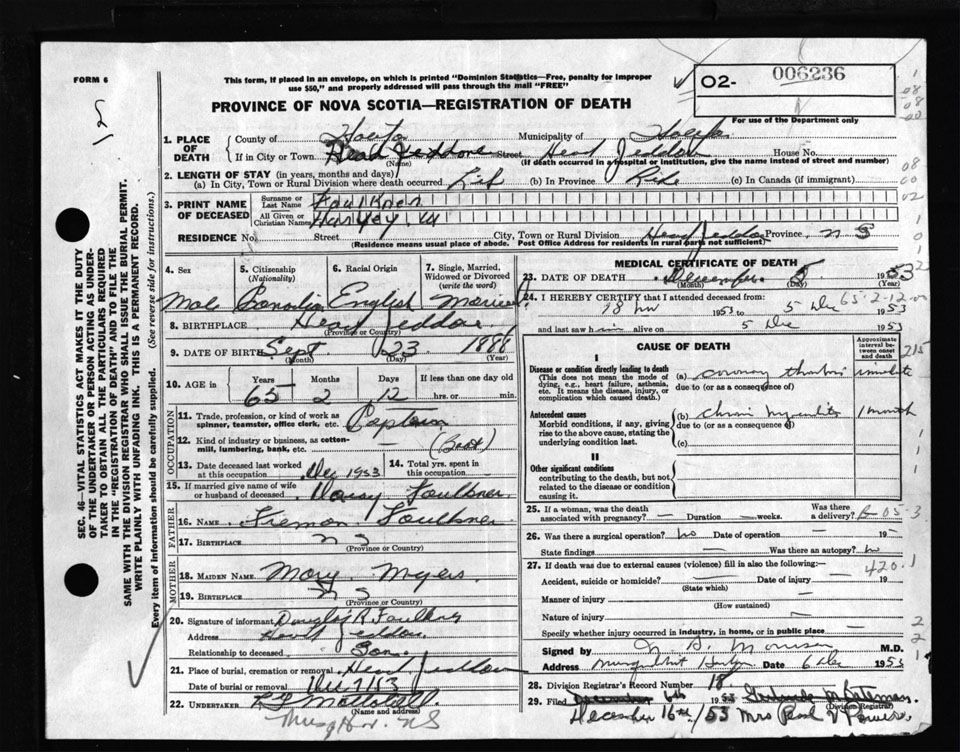 FORM 6
This form, if placed in an envelope, on which is printed "Dominion Statistics—Free, penalty for improper
use $50," and properly addressed will pass through the mail "FREE"
O2- 006236
For use of the Department only
PROVINCE OF NOVA SCOTIA—REGISTRATION OF DEATH
1. PLACE OF DEATH
County of Municipality of
If in City or Town Head Jeddore Street Head Jeddore House No.
(Name) (If death occurred in a hospital or institution, give the name instead of street and number)
2. LENGTH OF STAY (in years, months and days)
(a) In City, Town or Rural Division where death occurred Life (b) In Province Life (c) In Canada (if immigrant)
3. PRINT NAME OF DECEASED
Surname or Last Name Faulkner
All Given or Christian Names Harvey W
RESIDENCE No. Street City, Town or Rural Division Head Jeddore Province N S
(Residence means usual place of abode. Post Office Address for residents in rural parts not sufficient)
4. Sex
Male
5. Citizenship (Nationality)
Canadian
6. Racial Origin
English
7. Single, Married, Widowed or Divorced (write the word)
Married
8. BIRTHPLACE Head Jeddore
(Province or Country)
9. DATE OF BIRTH Sept 23 1888
(Month) (Day) (Year)
10. AGE in Years Months Days If less than one day old
65 2 12 hrs. or min.
OCCUPATION
11. Trade, profession, or kind of work as
spinner, teamster, office clerk, etc. Captain
12. Kind of industry or business, as cotton-
mill, lumbering, bank, etc. (Boat)
13. Date deceased last worked
at this occupation Dec 1953
14. Total yrs. spent in
this occupation
15. If married give name of wife
or husband of deceased Faulkner
FATHER
16. NAME Faulkner
17. BIRTHPLACE N S
(Province or Country)
MOTHER
18. MAIDEN NAME Mary Myers
19. BIRTHPLACE N S
(Province or Country)
20. Signature of informant Douglas R. Faulkner
Address Head Jeddore
Relationship to deceased Son
21. Place of burial, cremation or removal Head Jeddore
Date of burial or removal Dec 7/53
22. UNDERTAKER
(Name and Address)
N S
MEDICAL CERTIFICATE OF DEATH
23. DATE OF DEATH December 5 1953
(Month) (Day) (Year)
24. I HEREBY CERTIFY that I attended deceased from:
65-2-12-00
18 Nov 1953 to 5 Dec 1953
and last saw him alive on 5 Dec 1953
CAUSE OF DEATH
Approximate interval between onset and death
I
Disease or condition directly leading to death
(This does not mean the mode of
dying, e.g., heart failure, asthenia.
It means the disease, injury, or
complication which caused death.)
(a) coronary thrombosis immediate
due to (or as a consequence of)
Antecedent causes
Morbid conditions, if any, giving
rise to the above cause, stating the
underlying condition last.
(b) chronic myocarditis 1 month
due to (or as a consequence of)
(c)
II
Other significant conditions
contributing to the death, but not
related to the disease or condition
causing it.
25. If a woman, was the death
associated with pregnancy? — Duration — weeks. Was there
a delivery?
26. Was there a surgical operation? no Date of operation 195
State findings — Was there an autopsy? no
27. If death was due to external causes (violence) fill in also the following:—
420.1
Accident, suicide or homicide? Date of injury 19
(State which)
Manner of injury
(How sustained)
Nature of injury
Specify whether injury occurred in industry, in home, or in public place
Signed by M.D.
Address Musquodoboit Harbour Date 6 Dec 1953
28. Division Registrar's Record Number 18
29. Filed December 1953
(Division Registrar)
December 16th/53 Mrs
SEC. 46—VITAL STATISTICS ACT MAKES IT THE DUTY
OF THE UNDERTAKER OR PERSON ACTING AS UNDER-
TAKER TO OBTAIN ALL THE PARTICULARS REQUIRED
IN THE "REGISTRATION OF DEATH" AND TO FILE THE
SAME WITH THE DIVISION REGISTRAR WHO SHALL ISSUE THE BURIAL PERMIT.
WRITE PLAINLY WITH UNFADING INK. THIS IS A PERMANENT RECORD.
Every item of information should be carefully supplied. (See reverse side for instructions.)